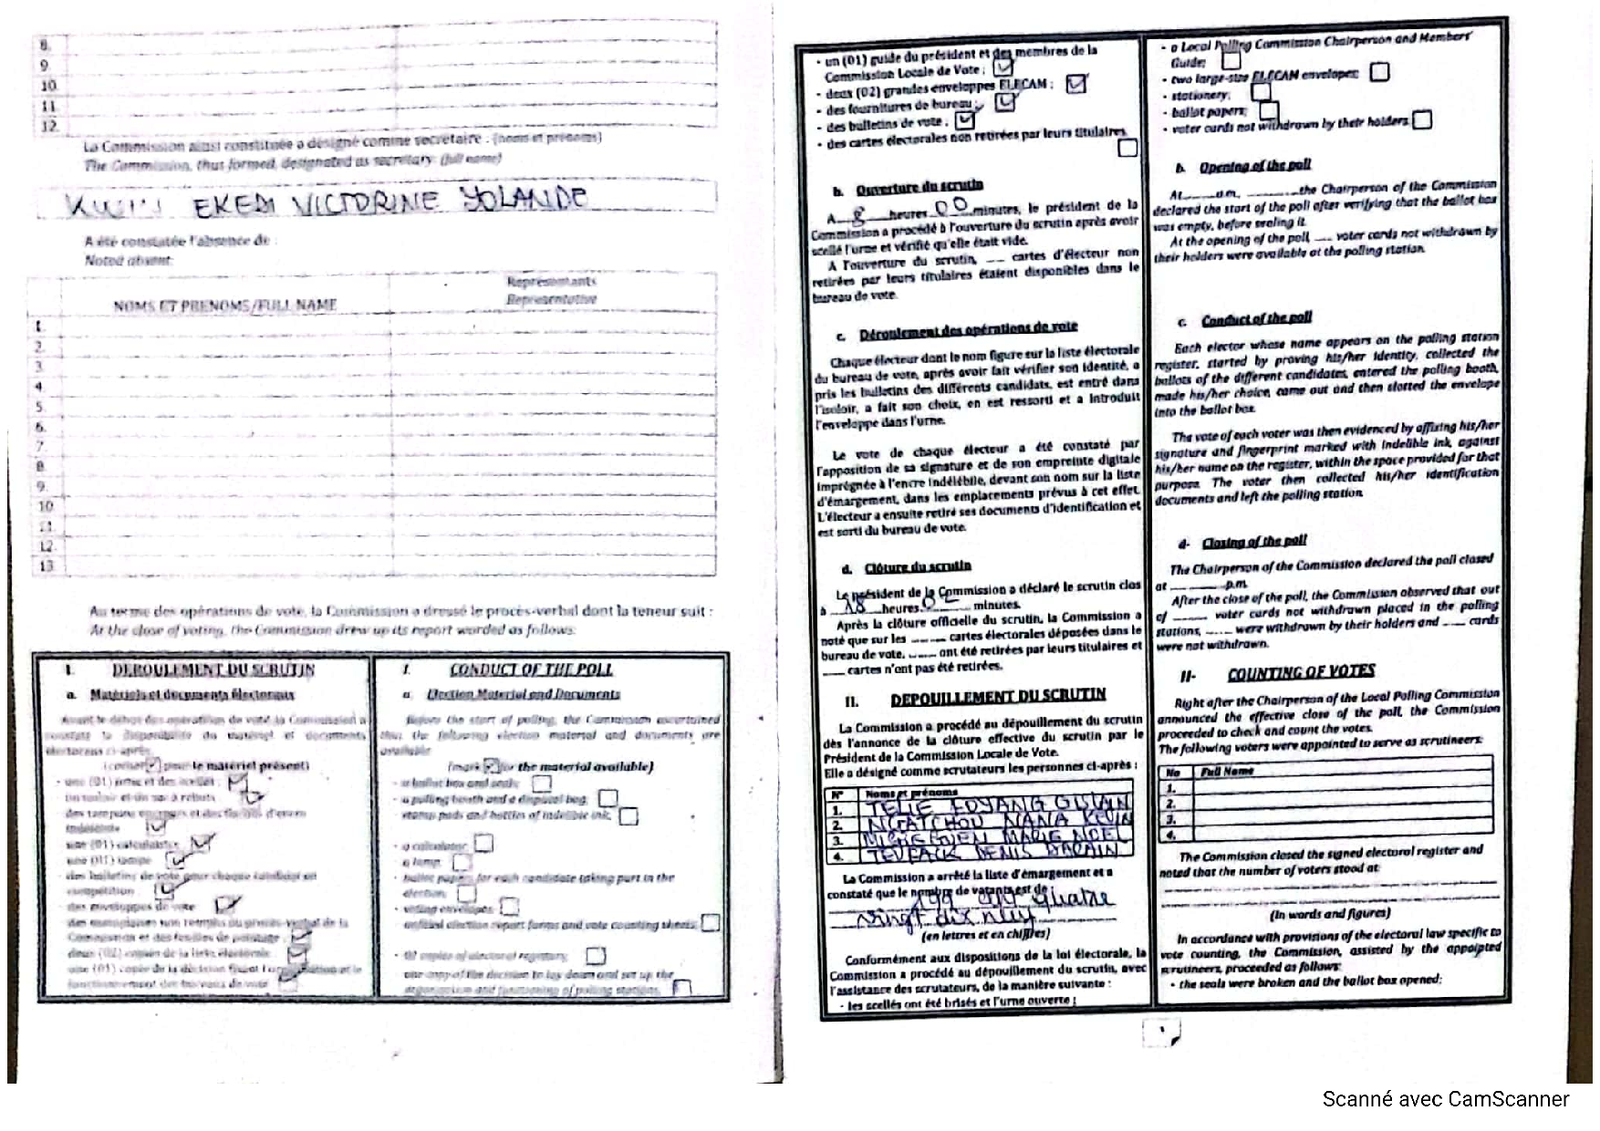 8.
9.
10.
11.
12.
La Commission ainsi constituée a désigné comme secrétaire : (noms et prénoms)
The Commission, thus formed, designated as secretary: (full name)
EKEDI VICTORINE YOLANDE
A été constatée l'absence de :
Noted absent:
NOMS ET PRENOMS/FULL NAME
Représentants
Representative
1.
2.
3.
4.
5.
6.
7.
8.
9.
10.
11.
12.
13.
Au terme des opérations de vote, la Commission a dressé le procès-verbal dont la teneur suit :
At the close of voting, the Commission drew up its report worded as follows:
I. DEROULEMENT DU SCRUTIN
a. Matériels et documents électoraux
Avant le début des opérations de vote la Commission a
constaté la disponibilité du matériel et documents
électoraux ci-après
(cocher pour le matériel présent)
- une (01) urne et des scellés ;
un isoloir et un sac à rebuts
des tampons encreurs et des flacons d'encre
indélébile
une (01) calculatrice
une (01) lampe
- des bulletins de vote pour chaque candidat en
compétition
des enveloppes de vote
des exemplaires non remplis du procès-verbal de la
Commission et des feuilles de pointage
deux (02) copies de la liste électorale
une (01) copie de la décision fixant l'organisation et le
fonctionnement des bureaux de vote
I. CONDUCT OF THE POLL
a. Election Material and Documents
Before the start of polling, the Commission ascertained
that the following election material and documents are
available
(mark for the material available)
- a ballot box and seals;
- a polling booth and a disposal bag;
- stamp pads and bottles of indelible ink;
- a calculator
- a lamp
- ballot papers for each candidate taking part in the
election;
- voting envelopes
- unfilled election report forms and vote counting sheets
- 02 copies of electoral registers;
- one copy of the decision to lay down and set up the
organization and functioning of polling stations
- un (01) guide du président et des membres de la
Commission Locale de Vote ;
- deux (02) grandes enveloppes ELECAM ;
- des fournitures de bureau ;
- des bulletins de vote ;
- des cartes électorales non retirées par leurs titulaires
b. Ouverture du scrutin
A 8 heures 00 minutes, le président de la
Commission a procédé à l'ouverture du scrutin après avoir
scellé l'urne et vérifié qu'elle était vide.
A l'ouverture du scrutin, __ cartes d'électeur non
retirées par leurs titulaires étaient disponibles dans le
bureau de vote.
c. Déroulement des opérations de vote
Chaque électeur dont le nom figure sur la liste électorale
du bureau de vote, après avoir fait vérifier son identité, a
pris les bulletins des différents candidats, est entré dans
l'isoloir, a fait son choix, en est ressorti et a introduit
l'enveloppe dans l'urne.
Le vote de chaque électeur a été constaté par
l'apposition de sa signature et de son empreinte digitale
imprégnée à l'encre indélébile, devant son nom sur la liste
d'émargement, dans les emplacements prévus à cet effet.
L'électeur a ensuite retiré ses documents d'identification et
est sorti du bureau de vote.
d. Clôture du scrutin
Le président de la Commission a déclaré le scrutin clos
à 18 heures 0 minutes.
Après la clôture officielle du scrutin, la Commission a
noté que sur les ____ cartes électorales déposées dans le
bureau de vote, ____ ont été retirées par leurs titulaires et
____ cartes n'ont pas été retirées.
II. DEPOUILLEMENT DU SCRUTIN
La Commission a procédé au dépouillement du scrutin
dès l'annonce de la clôture effective du scrutin par le
Président de la Commission Locale de Vote.
Elle a désigné comme scrutateurs les personnes ci-après :
N° Noms et prénoms
1.
2. NGATCHOU NANA KEVIN
3. MARIE NOEL
4. TEUFACK DENIS
La Commission a arrêté la liste d'émargement et a
constaté que le nombre de votants est de
199 cent quatre
vingt dix neuf
(en lettres et en chiffres)
Conformément aux dispositions de la loi électorale, la
Commission a procédé au dépouillement du scrutin, avec
l'assistance des scrutateurs, de la manière suivante :
- les scellés ont été brisés et l'urne ouverte ;
- a Local Polling Commission Chairperson and Members'
Guide;
- two large-size ELECAM envelopes;
- stationery;
- ballot papers;
- voter cards not withdrawn by their holders
b. Opening of the poll
At ____ a.m, ____ the Chairperson of the Commission
declared the start of the poll after verifying that the ballot box
was empty, before sealing it.
At the opening of the poll, ___ voter cards not withdrawn by
their holders were available at the polling station.
c. Conduct of the poll
Each elector whose name appears on the polling station
register, started by proving his/her identity, collected the
ballots of the different candidates, entered the polling booth,
made his/her choice, came out and then slotted the envelope
into the ballot box.
The vote of each voter was then evidenced by affixing his/her
signature and fingerprint marked with indelible ink, against
his/her name on the register, within the space provided for that
purpose. The voter then collected his/her identification
documents and left the polling station.
d- Closing of the poll
The Chairperson of the Commission declared the poll closed
at ______ p.m.
After the close of the poll, the Commission observed that out
of _____ voter cards not withdrawn placed in the polling
stations, ____ were withdrawn by their holders and ____ cards
were not withdrawn.
II- COUNTING OF VOTES
Right after the Chairperson of the Local Polling Commission
announced the effective close of the poll, the Commission
proceeded to check and count the votes.
The following voters were appointed to serve as scrutineers:
No Full Name
1.
2.
3.
4.
The Commission closed the signed electoral register and
noted that the number of voters stood at:
(In words and figures)
In accordance with provisions of the electoral law specific to
vote counting, the Commission, assisted by the appointed
scrutineers, proceeded as follows:
- the seals were broken and the ballot box opened;
Scanné avec CamScanner